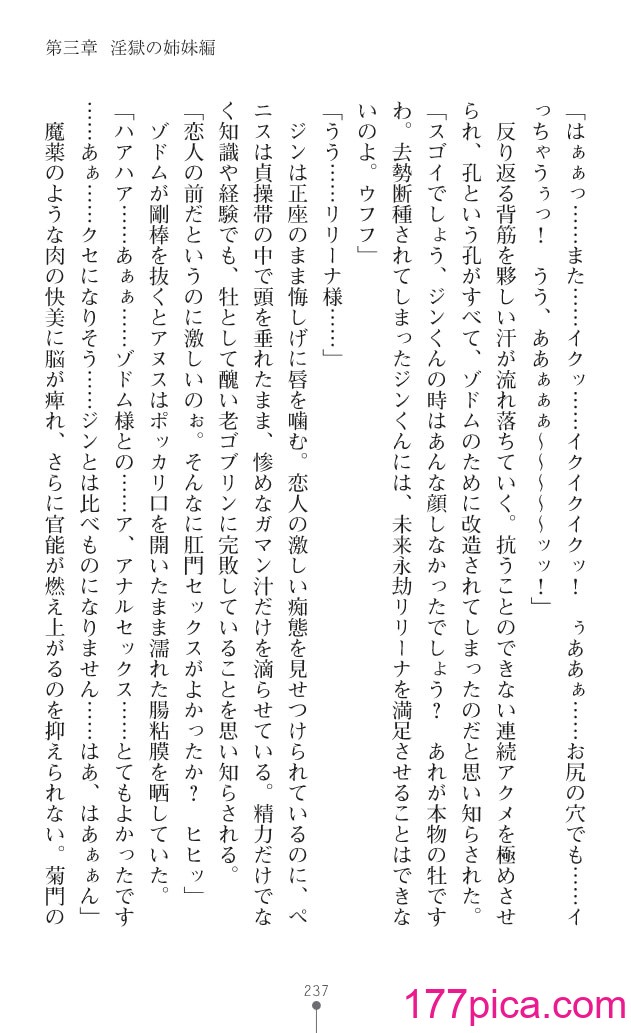 第三章 淫獄の姉妹編
「はぁぁっ……また……イクッ……イクイクイクッ！ ぅああぁ……お尻の穴でも……イ
っちゃうぅっ！ うう、ああぁぁぁ～～～～～ッッ！」
反り返る背筋を夥しい汗が流れ落ちていく。抗うことのできない連続アクメを極めさせ
られ、孔という孔がすべて、ゾドムのために改造されてしまったのだと思い知らされた。
「スゴイでしょう、ジンくんの時はあんな顔しなかったでしょう？ あれが本物の牡です
わ。去勢断種されてしまったジンくんには、未来永劫リリーナを満足させることはできな
いのよ。ウフフ」
「うう……リリーナ様……」
ジンは正座のまま悔しげに唇を噛む。恋人の激しい痴態を見せつけられているのに、ペ
ニスは貞操帯の中で頭を垂れたまま、惨めなガマン汁だけを滴らせている。精力だけでな
く知識や経験でも、牡として醜い老ゴブリンに完敗していることを思い知らされる。
「恋人の前だというのに激しいのぉ。そんなに肛門セックスがよかったか？ ヒヒッ」
ゾドムが剛棒を抜くとアヌスはポッカリ口を開いたまま濡れた腸粘膜を晒していた。
「ハアハア……あぁぁ……ゾドム様との……ア、アナルセックス……とてもよかったです
……あぁ……クセになりそう……ジンとは比べものになりません……はあ、はあぁぁん」
魔薬のような肉の快美に脳が痺れ、さらに官能が燃え上がるのを抑えられない。菊門の
237
177pica.com